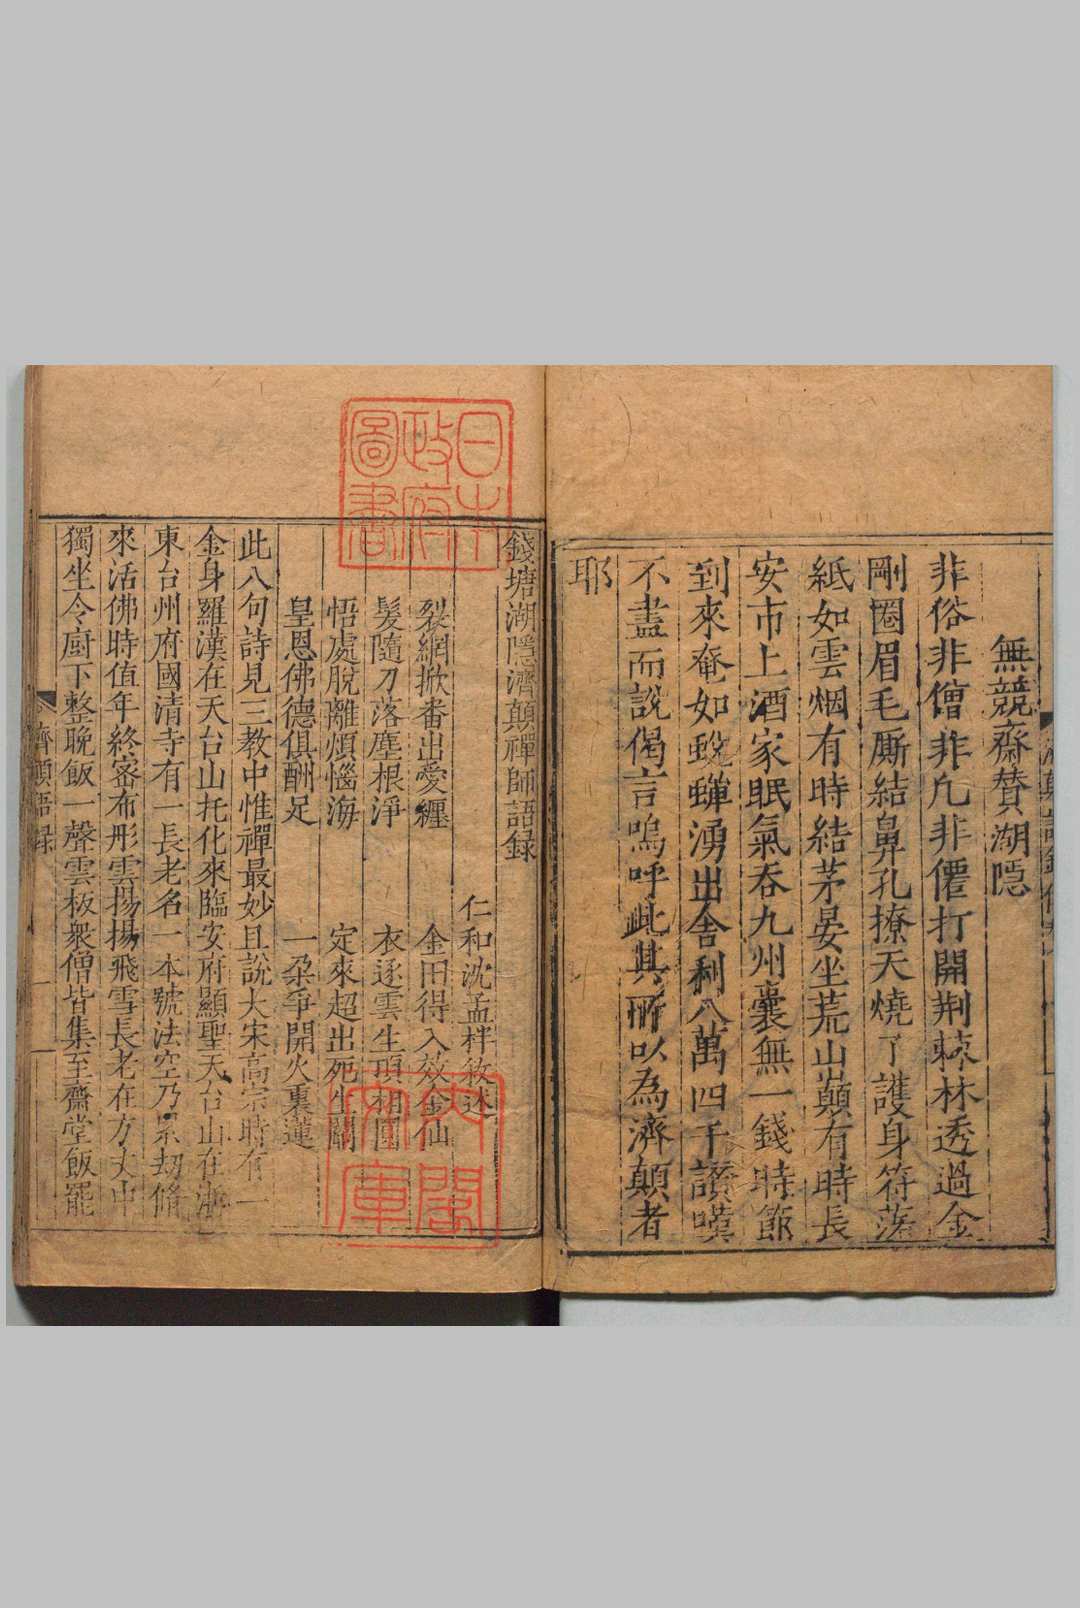 無競齋賛湖隱
非俗非僧非凡非僊打開荆棘林透過金
剛圈眉毛厮結鼻孔撩天燒了護身符落
紙如雲烟有時結茅晏坐荒山巔有時長
安市上酒家眠氣吞九州囊無一錢時節
到來奄如蛻蟬湧出舍利八萬四千讃嘆
不盡而說偈言嗚呼此其所以為濟顛者
耶
錢塘湖隱濟顛禪師語録
仁和沈孟柈敘述
裂網掀番出愛纏 金田得入效金仙
髮隨刀落塵根淨 衣逐雲生頂相圓
悟處脫離煩惱海 定來超出死生關
皇恩佛德俱酬足 一朶爭開火裏蓮
此八句詩見三教中惟禪最妙且說大宋高宗時有一
金身羅漢在天台山托化來臨安府顯聖天台山在浙
東台州府國清寺有一長老名一本號法空乃累劫脩
來活佛時值年終密布彤雲揚揚飛雪長老在方丈中
獨坐令厨下整晚飯一聲雲板衆僧皆集至齋堂飯罷
濟顛語録
一
日本
政府
圖書
內閣
文庫